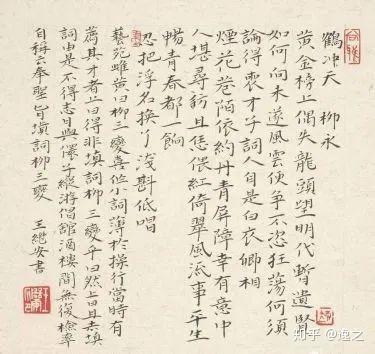 鶴冲天 柳永
黄金榜上偶失龍頭望明代暫遺賢
如何向未遂風雲便争不恣狂蕩何須
論得喪才子詞人自是白衣卿相
煙花巷陌依約丹青屏障幸有意中
人堪尋訪且恁偎紅倚翠風流事平生
暢青春都一餉
忍把浮名換了浅斟低唱
藝苑雌黄曰柳三變喜作小詞薄於操行當時有
薦其才者上曰得非填詞柳三變乎曰然上曰且去填
詞由是不得志日與儇子縱游倡館酒樓間無復檢率
自稱云奉聖旨填詞柳三變
王繼安書
知乎 @逸之